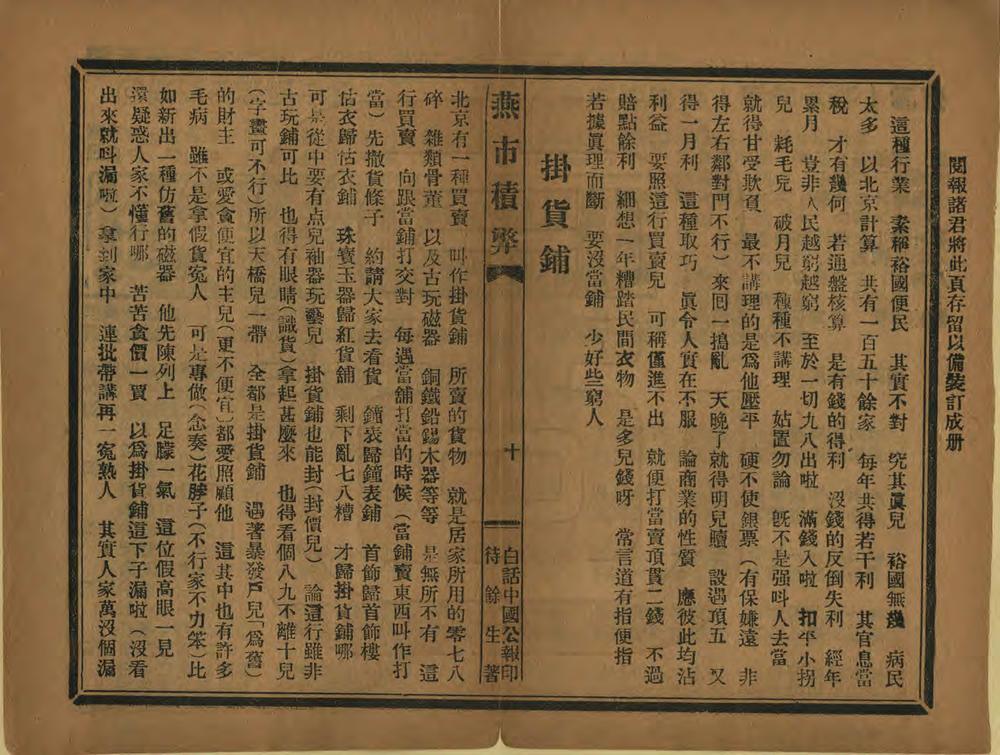 閱報諸君將此頁存留以備裝訂成册
這種行業　素稱裕國便民　其實不對　究其眞兒　裕國無幾　病民
太多　以北京計算　共有一百五十餘家　每年共得若干利　其官息當
稅　才有幾何　若通盤核算　是有錢的得利　沒錢的反倒失利　經年
累月　豈非人民越窮越窮　至於一切九八出啦　滿錢入啦　扣平小拐
兒　耗毛兒　破月兒　種種不講理　姑置勿論　旣不是强呌人去當
就得甘受欺負　最不講理的是爲他壓平　硬不使銀票（有保嫌遠　非
得左右鄰對門不行）來囘一搗亂　天晚了就得明兒贖　設遇頂五　又
得一月利　這種取巧　眞令人實在不服　論商業的性質　應彼此均沾
利益　要照這行買賣兒　可稱僅進不出　就便打當賣頂貫二錢　不過
賠點餘利　細想一年糟踏民間衣物　是多兒錢呀　常言道有指便指
若據眞理而斷　要沒當鋪　少好些窮人
掛貨鋪
燕市積弊
十
白話中國公報印
待餘生著
北京有一種買賣　呌作掛貨鋪　所賣的貨物　就是居家所用的零七八
碎　雜類骨董　以及古玩磁器　銅鐵鉛錫木器等等　是無所不有　這
行買賣　向跟當鋪打交對　每遇當舖打當的時候（當鋪賣東西呌作打
當）先撒貨條子　約請大家去看貨　鐘表歸鐘表鋪　首飾歸首飾樓
估衣歸估衣鋪　珠寶玉器歸紅貨舖　剩下亂七八糟　才歸掛貨鋪哪
可是從中要有点兒袖器玩藝兒　掛貨鋪也能封（封價兒）　論這行雖非
古玩鋪可比　也得有眼睛（識貨）拿起甚麼來　也得看個八九不離十兒
（字畫可不行）所以天橋兒一帶　全都是掛貨鋪　遇著暴發戶兒「爲舊）
的財主　或愛貪便宜的主兒（更不便宜）都愛照顧他　這其中也有許多
毛病　雖不是拿假貨冤人　可是專做（念奏）花脖子（不行家不力笨）比
如新出一種仿舊的磁器　他先陳列上　足朦一氣　這位假高眼一見
還疑惑人家不懂行哪　苦苦貪價一買　以爲掛貨鋪這下子漏啦（沒看
出來就呌漏啦）拿到家中　連批帶講再一寃熟人　其實人家萬沒個漏